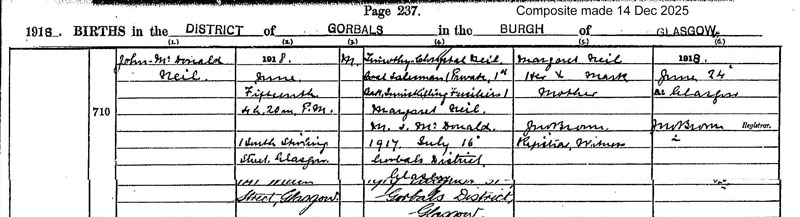 Page 237.
Composite made 14 Dec 2025
1918. BIRTHS in the DISTRICT of GORBALS in the BURGH of GLASGOW
(1.) (2.) (3.) (4.) (5.) (6.)
710
John McDonald
Neil
1918.
June
Fifteenth
4 h. 20 m. P.M.
Street, Glasgow
Street, Glasgow.
M.
Timothy Chrystal Neil
Coal Salesman (Private, 1st
Batt. Inniskilling Fusiliers)
Margaret Neil
M. S. McDonald.
1917. July 16
Gorbals District
Glasgow
Gorbals District,
Glasgow
Margaret Neil
Her X Mark
Mother
Jno Brown
Registrar, Witness
1918.
June 24
At Glasgow
Jno Brown
Registrar.